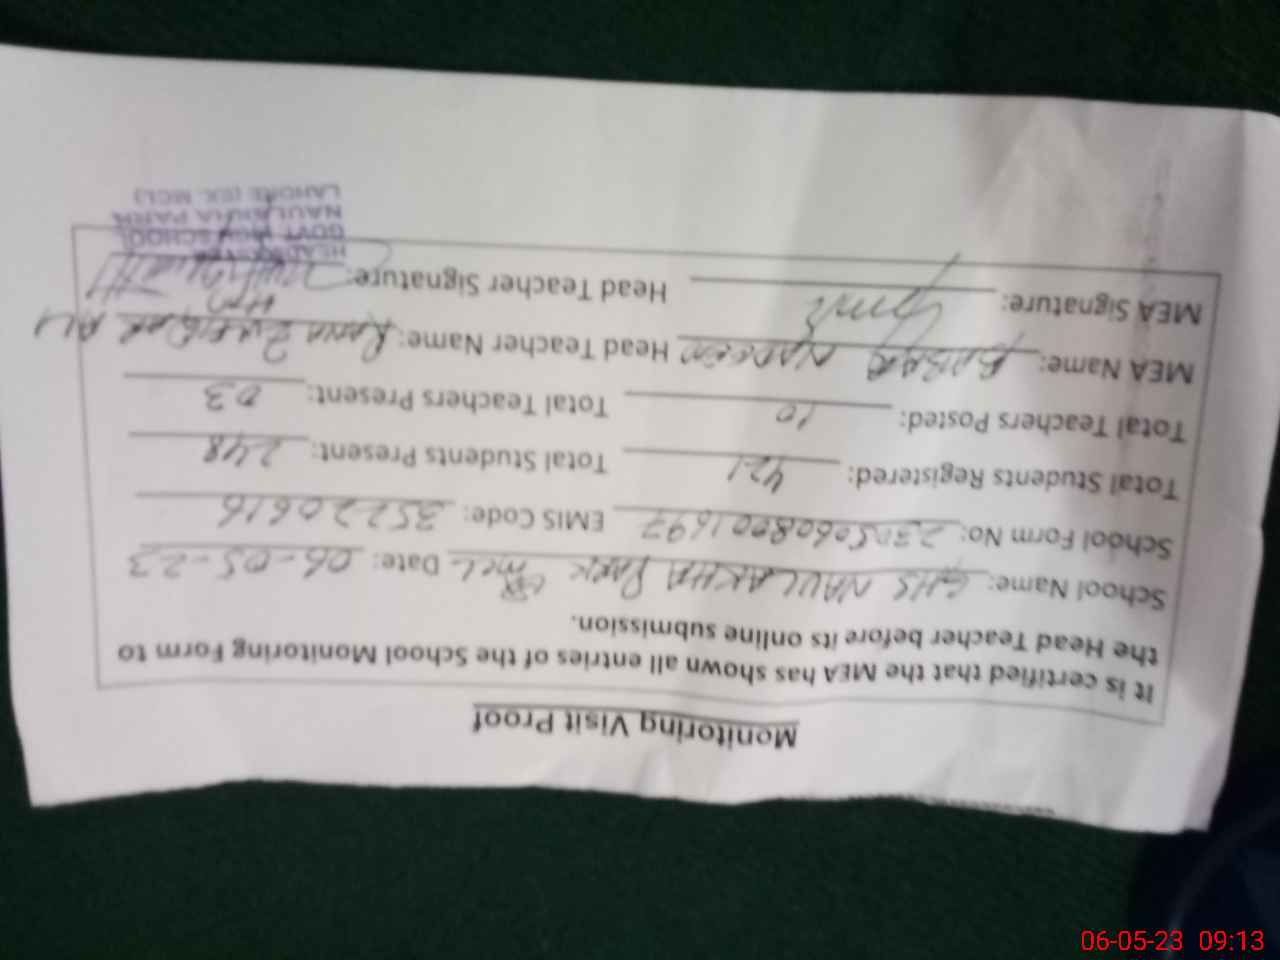 Monitoring Visit Proof
It is certified that the MEA has shown all entries of the School Monitoring Form to
the Head Teacher before its online submission.
School Name: GHS NAULAKHA PARK EX MCL Date: 06-05-23
School Form No: 2305060800 1697 EMIS Code: 35220616
Total Students Registered: 421 Total Students Present: 248
Total Teachers Posted: 10 Total Teachers Present: 03
MEA Name: BABAR NADEEM Head Teacher Name: Rana Zulfiqar Ali
MEA Signature: Head Teacher Signature: HM
HEADMASTER
GOVT HIGH SCHOOL
NAULAKHA PARK
LAHORE (EX. MCL)
06-05-23 09:13